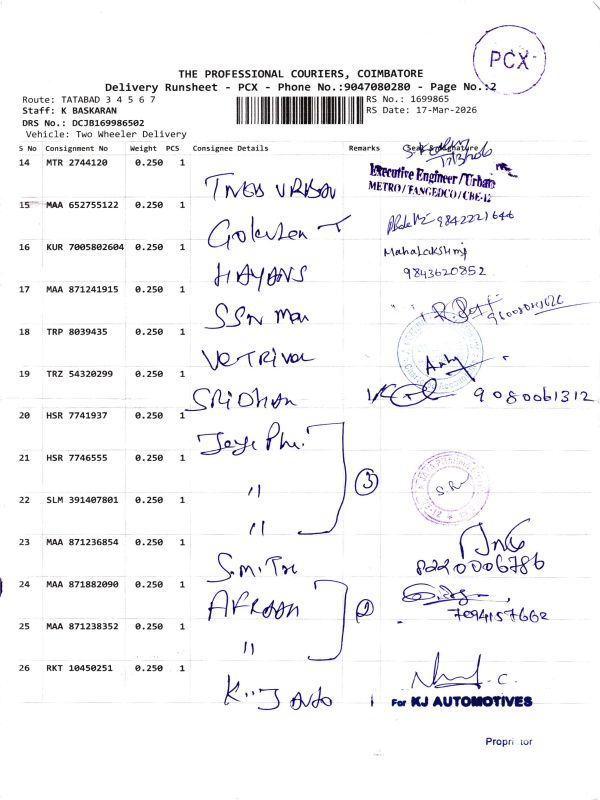 PCX
THE PROFESSIONAL COURIERS, COIMBATORE
Delivery Runsheet - PCX - Phone No.:9047080280 - Page No.:2
Route: TATABAD 3 4 5 6 7
RS No.: 1699865
Staff: K BASKARAN
RS Date: 17-Mar-2026
DRS No.: DCJB169986502
Vehicle: Two Wheeler Delivery
S No Consignment No Weight PCS Consignee Details Remarks Seal & Signature
14 MTR 2744120 0.250 1
Executive Engineer/Urban
METRO/TANGEDCO/CBE-12
15 MAA 652755122 0.250 1
9842221646
Gokulan T
16 KUR 7005802604 0.250 1
Mahalakshmi
9843620852
HAYANS
17 MAA 871241915 0.250 1
SSN Man
18 TRP 8039435 0.250 1
Vetrivel
19 TRZ 54320299 0.250 1
Sridhar
9080061312
20 HSR 7741937 0.250 1
21 HSR 7746555 0.250 1
"
3
22 SLM 391407801 0.250 1
"
23 MAA 871236854 0.250 1
8220006786
24 MAA 871882090 0.250 1
2
7094157662
25 MAA 871238352 0.250 1
"
26 RKT 10450251 0.250 1
K.J Auto
For KJ AUTOMOTIVES
Proprietor